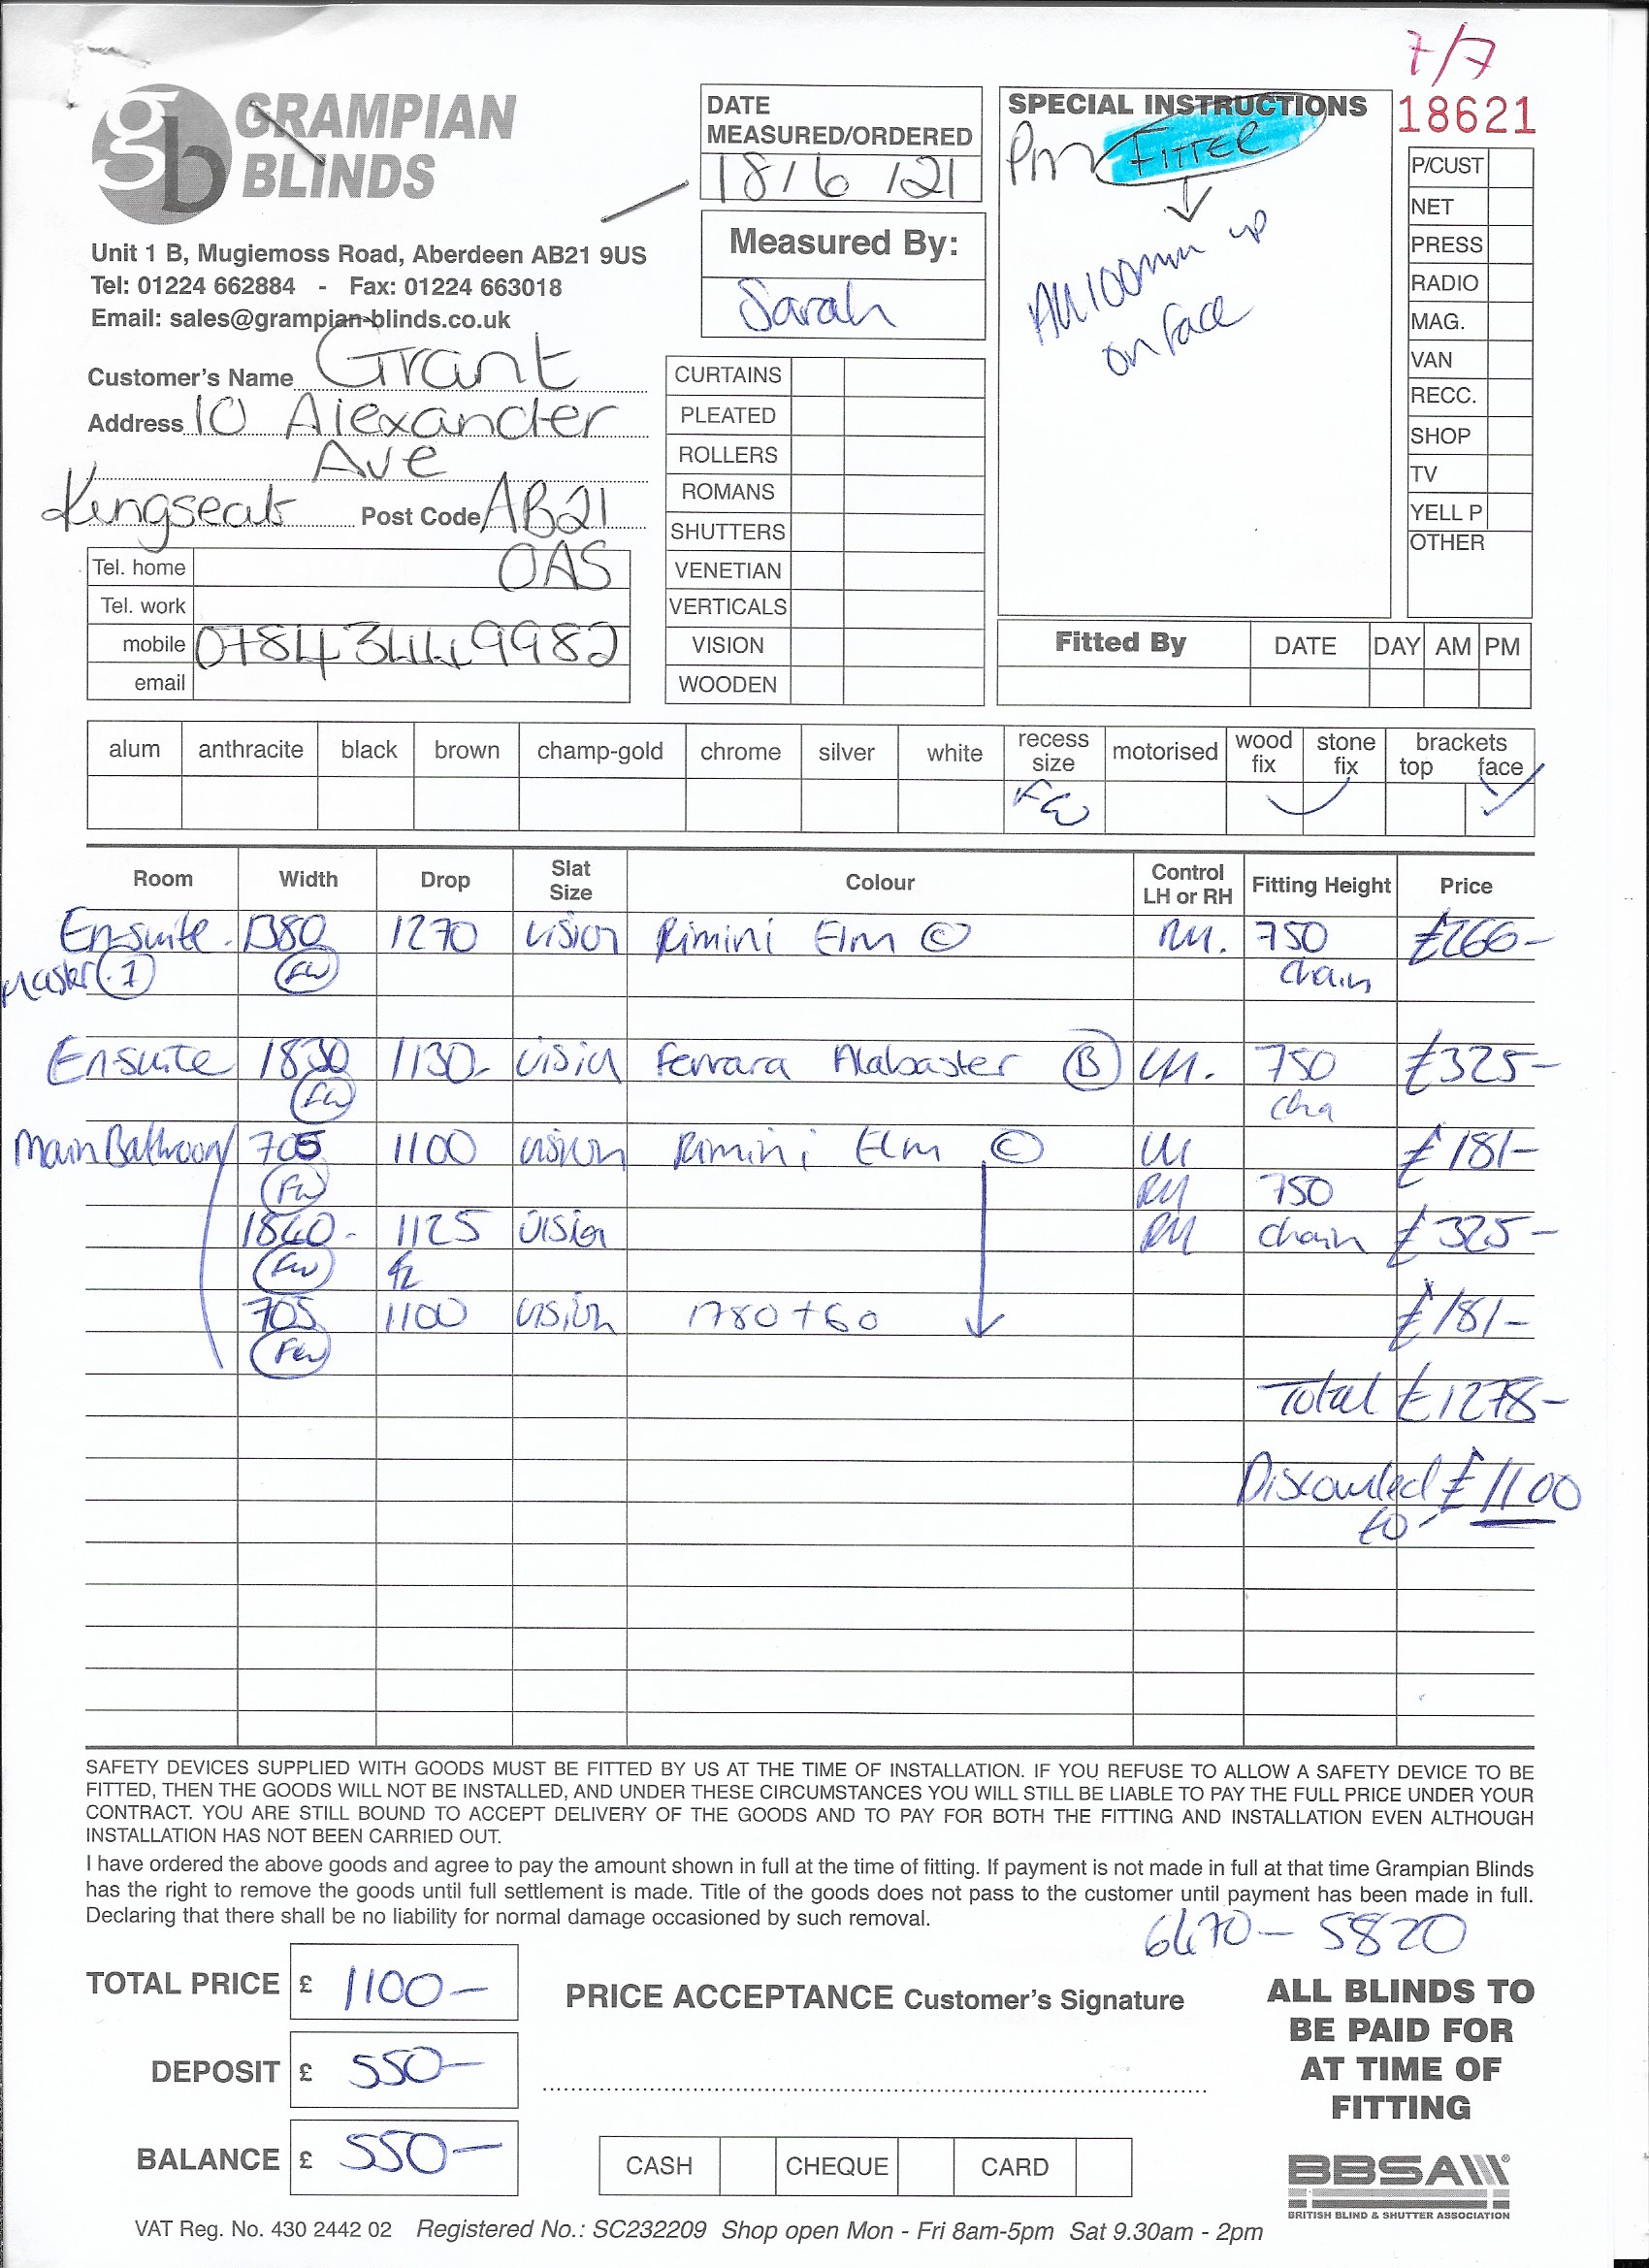 7/7
GRAMPIAN
BLINDS
gb
Unit 1 B, Mugiemoss Road, Aberdeen AB21 9US
Tel: 01224 662884 - Fax: 01224 663018
Email: sales@grampian-blinds.co.uk
DATE
MEASURED/ORDERED
18/6/21
Measured By:
Sarah
SPECIAL INSTRUCTIONS
PM FITTER
All 100mm up
on face
18621
P/CUST
NET
PRESS
RADIO
MAG.
VAN
RECC.
SHOP
TV
YELL P
OTHER
Customer's Name Grant
Address 10 Alexander
Ave
Kingseat Post Code AB21
0AS
Tel. home
Tel. work
mobile 07843449982
email
CURTAINS
PLEATED
ROLLERS
ROMANS
SHUTTERS
VENETIAN
VERTICALS
VISION
WOODEN
Fitted By DATE DAY AM PM
alum anthracite black brown champ-gold chrome silver white recess size motorised wood fix stone fix brackets top face
FW
Room Width Drop Slat Size Colour Control LH or RH Fitting Height Price
En-suite 1380 1270 vision Rimini Elm C RH. 750 £266-
Master 1 FW chain
Ensuite 1830 1130- vision Ferrara Alabaster B LH. 750 £325-
FW cha
Main Bathroom 705 1100 vision Rimini Elm C LH £181-
FW RH 750
1840- 1125 vision RH chain £325-
FW
705 1100 vision 1780+60 £181-
FW
Total £1278-
Discounted £1100
to-
SAFETY DEVICES SUPPLIED WITH GOODS MUST BE FITTED BY US AT THE TIME OF INSTALLATION. IF YOU REFUSE TO ALLOW A SAFETY DEVICE TO BE
FITTED, THEN THE GOODS WILL NOT BE INSTALLED, AND UNDER THESE CIRCUMSTANCES YOU WILL STILL BE LIABLE TO PAY THE FULL PRICE UNDER YOUR
CONTRACT. YOU ARE STILL BOUND TO ACCEPT DELIVERY OF THE GOODS AND TO PAY FOR BOTH THE FITTING AND INSTALLATION EVEN ALTHOUGH
INSTALLATION HAS NOT BEEN CARRIED OUT.
I have ordered the above goods and agree to pay the amount shown in full at the time of fitting. If payment is not made in full at that time Grampian Blinds
has the right to remove the goods until full settlement is made. Title of the goods does not pass to the customer until payment has been made in full.
Declaring that there shall be no liability for normal damage occasioned by such removal.
6470- 5820
TOTAL PRICE £ 1100-
DEPOSIT £ 550-
BALANCE £ 550-
PRICE ACCEPTANCE Customer's Signature
CASH CHEQUE CARD
ALL BLINDS TO
BE PAID FOR
AT TIME OF
FITTING
BBSA
BRITISH BLIND & SHUTTER ASSOCIATION
VAT Reg. No. 430 2442 02 Registered No.: SC232209 Shop open Mon - Fri 8am-5pm Sat 9.30am - 2pm